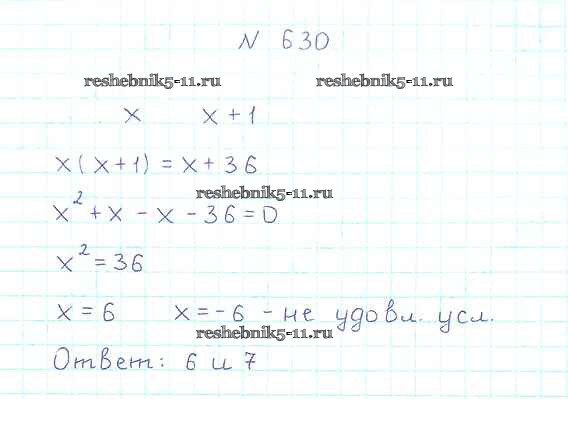 N 630
reshebnik5-11.ru reshebnik5-11.ru
x x+1
x(x+1) = x+36
reshebnik5-11.ru
x² + x - x - 36 = 0
x² = 36
x = 6 x = -6 - не удовл. усл.
reshebnik5-11.ru
Ответ: 6 и 7